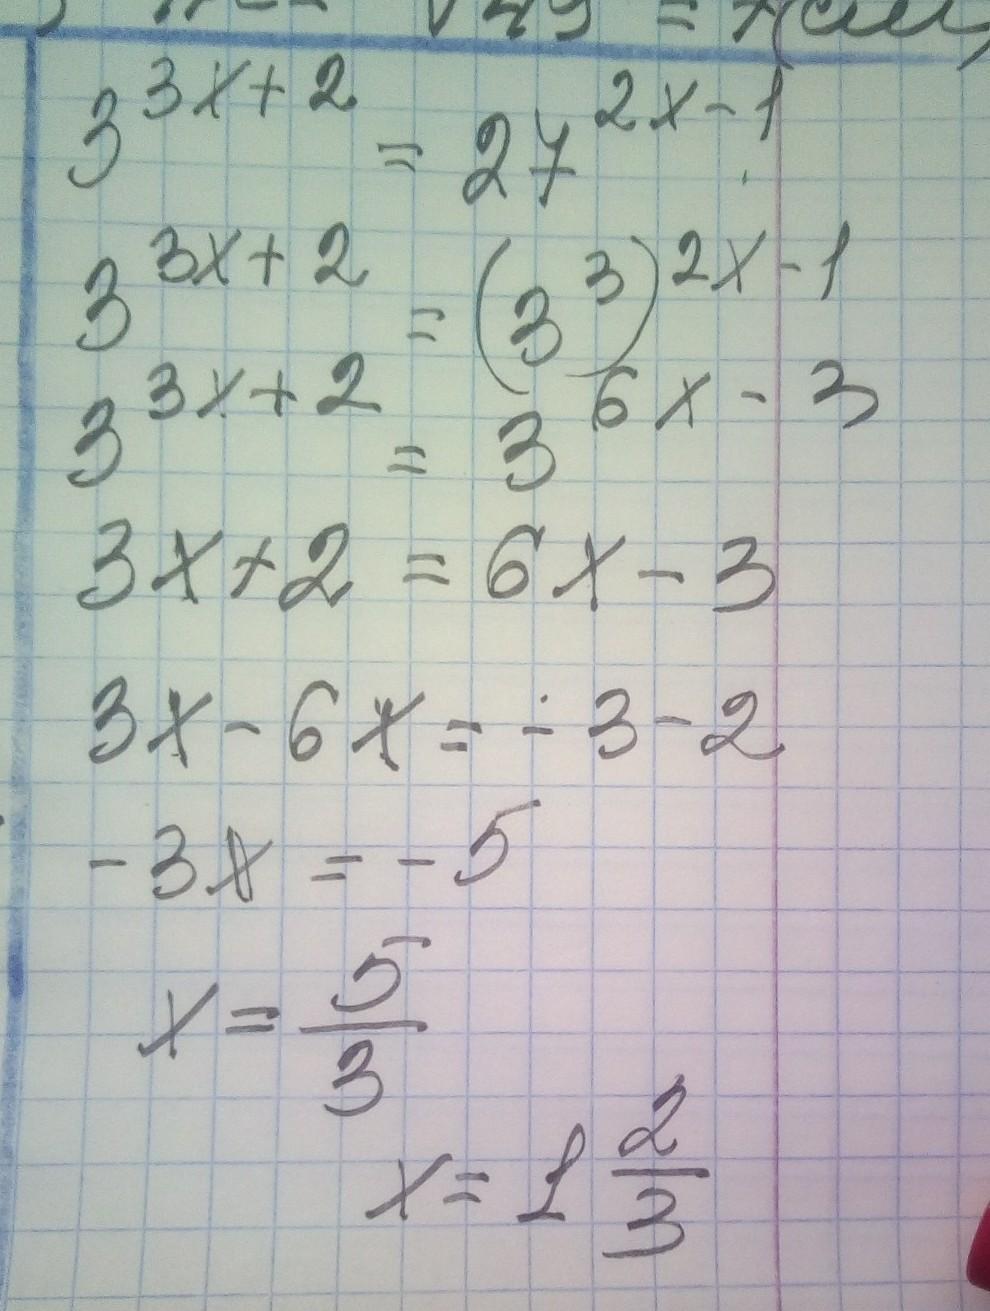 √49 = 7(см)
3^{3x+2} = 27^{2x-1}
3^{3x+2} = (3^3)^{2x-1}
3^{3x+2} = 3^{6x-3}
3x+2 = 6x-3
3x-6x = -3-2
-3x = -5
x = 5/3
x = 1 2/3